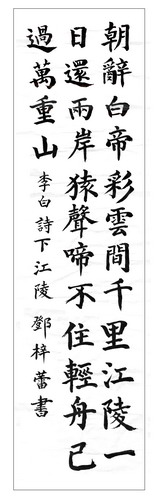 朝辭白帝彩雲間千里江陵一
日還兩岸猿聲啼不住輕舟已
過萬重山
李白詩下江陵 鄧梓蕾書